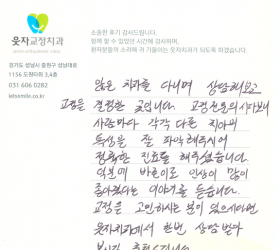 웃자교정치과
경기도 성남시 중원구 성남대로
1156 도원타워 3,4층
031 606 0282
letssmile.co.kr
소중한 후기 감사드립니다.
함께 할 수 있었던 시간에 감사하며,
환자분들의 소리에 귀 기울이는 웃자치과가 되도록 하겠습니다.
많은 치과를 다니며 상담해보고
교정을 결정한 곳입니다. 교정전문의시다보니
사람마다 각각 다른 치아의
특성을 잘 파악해주시어
정확한 진료를 해주셨습니다.
덕분에 바른이로 인상이 많이
좋아졌다는 이야기를 듣습니다.
교정을 고민하시는 분이 있으시다면
웃자치과에서 한번 상담 받아
보시길 추천드립니다